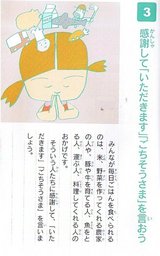 3
感謝して「いただきます」「ごちそうさま」を言おう
かんしゃ
みんなが毎日ごはんを食べられる
のは、米、野菜を作ってくれる農家
の人や、豚や牛を育てる人、魚をと
る人、運ぶ人、料理してくれる人の
おかげです。
そういう人たちに感謝して、「いた
だきます」「ごちそうさま」を言いま
しょう。